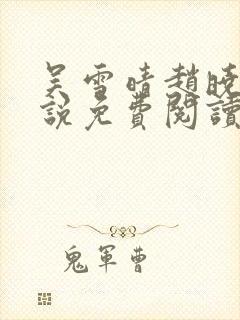 吴雪晴趙曉
說免費閱讀
鬼軍曹